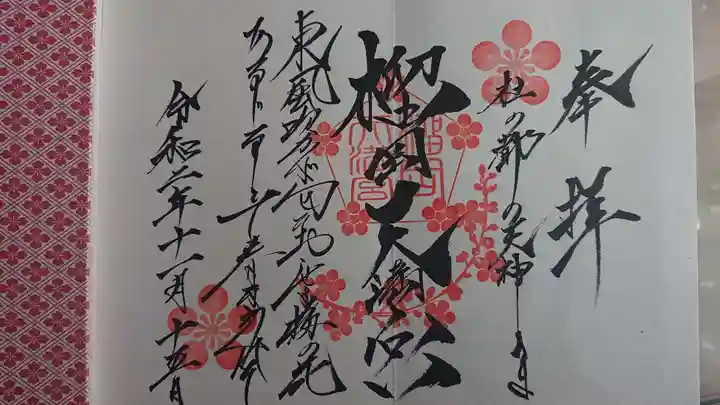 奉拝
杜の都の天神さま
榴岡天満宮
東風吹かば匂ひおこせよ梅の花
あるじなしとて春な忘れそ
令和二年十一月十五日